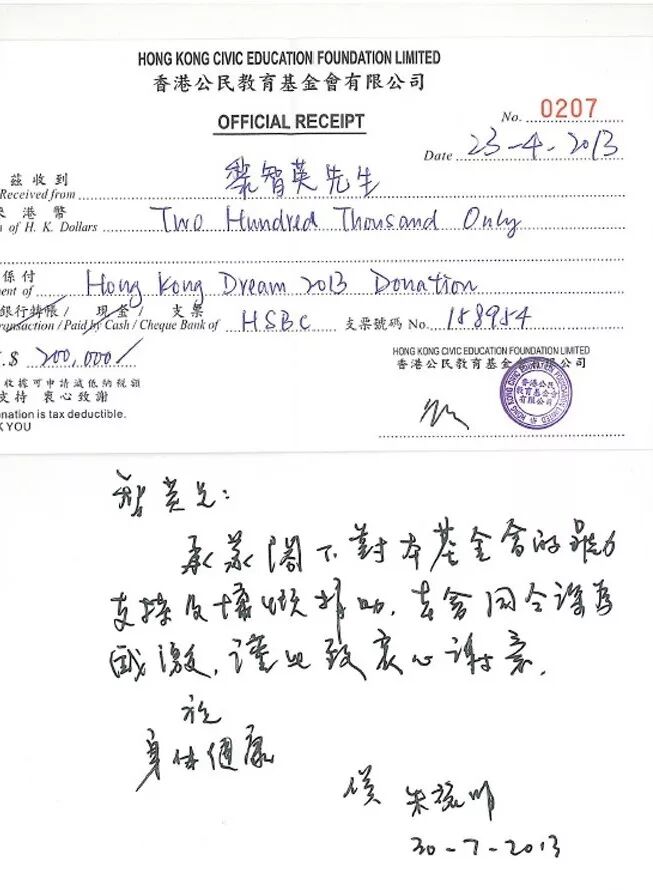 HONG KONG CIVIC EDUCATION FOUNDATION LIMITED
香港公民教育基金會有限公司
OFFICIAL RECEIPT
No. 0207
Date 23-4-2013
茲收到
Received from 黎智英先生
港幣
of H. K. Dollars Two Hundred Thousand Only
係付
ment of Hong Kong Dream 2013 Donation
銀行轉帳 / 現金 / 支票
ransaction / Paid by Cash / Cheque Bank of HSBC 支票號碼 No. 158954
.$ 200,000/
收據可申請減低納稅額
支持 衷心致謝
onation is tax deductible.
K YOU
HONG KONG CIVIC EDUCATION FOUNDATION LIMITED
香港公民教育基金會有限公司
香港公民
教育基金會
有限公司
智英兄:
承蒙閣下對本基金會的鼎力
支持及慷慨捐助,會同仝深為
感激,謹此致衷心謝意.
祝
身体健康
僕 朱耀明
30-7-2013